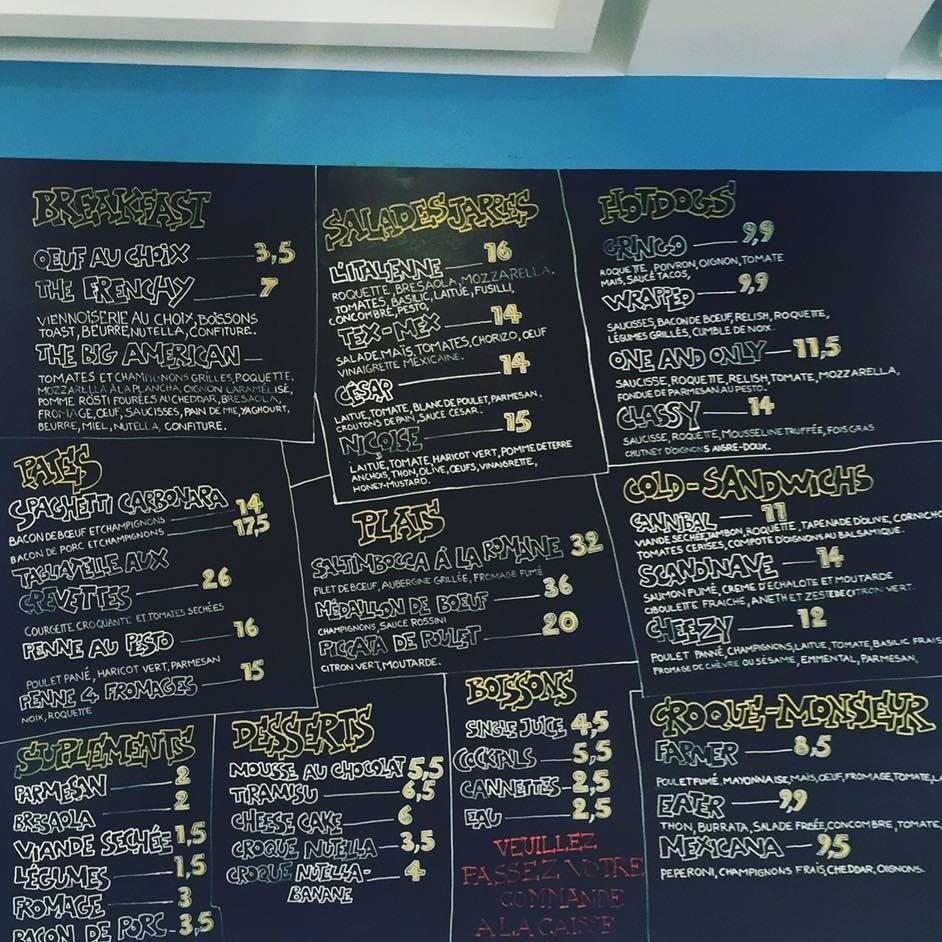 BREAKFAST
OEUF AU CHOIX 3,5
THE FRENCHY 7
VIENNOISERIE AU CHOIX, BOISSONS
TOAST, BEURRE, NUTELLA, CONFITURE.
THE BIG AMERICAN
TOMATES ET CHAMPIGNONS GRILLES, ROQUETTE,
MOZZARELLA À LA PLANCHA, OIGNON CARAMÉLISÉ,
POMME RÖSTI FOURÉES AU CHEDDAR, BRESAOLA,
FROMAGE, ŒUF, SAUCISSES, PAIN DE MIE, YAGHOURT,
BEURRE, MIEL, NUTELLA, CONFITURE.
SALADES JARRES
L'ITALIENNE 16
ROQUETTE, BRESAOLA, MOZZARELLA,
TOMATES, BASILIC, LAITUE, FUSILLI,
CONCOMBRE, PESTO.
TEX-MEX 14
SALADE, MAÏS, TOMATES, CHORIZO, ŒUF
VINAIGRETTE MEXICAINE.
CÉSAR 14
LAITUE, TOMATE, BLANC DE POULET, PARMESAN,
CROUTONS DE PAIN, SAUCE CESAR.
NIÇOISE 15
LAITUE, TOMATE, HARICOT VERT, POMME DE TERRE
ANCHOIS, THON, OLIVE, ŒUFS, VINAIGRETTE,
HONEY-MUSTARD.
HOTDOGS
GRINGO 9,9
ROQUETTE, POIVRON, OIGNON, TOMATE
MAIS, SAUCE TACOS,
WRAPPED 9,9
SAUCISSES, BACON DE BŒUF, RELISH, ROQUETTE,
LÉGUMES GRILLÉS, CUMBLE DE NOIX.
ONE AND ONLY 11,5
SAUCISSE, ROQUETTE, RELISH, TOMATE, MOZZARELLA,
FONDUE DE PARMESAN AU PESTO.
CLASSY 14
SAUCISSE, ROQUETTE, MOUSSELINE TRUFFÉE, FOIS GRAS
CHUTNEY D'OIGNONS AIGRE-DOUX.
PATES
SPAGHETTI CARBONARA
BACON DE BŒUF ET CHAMPIGNONS 14
BACON DE PORC ET CHAMPIGNONS 17,5
TAGLIATELLE AUX
CREVETTES 26
COURGETTE, CROQUANTE ET TOMATES SECHÉES
PENNE AU PESTO 16
POULET PANÉ, HARICOT VERT, PARMESAN
PENNE 4 FROMAGES 15
NOIX, ROQUETTE
PLATS
SALTIMBOCCA À LA ROMAINE 32
FILET DE BŒUF, AUBERGINE GRILLÉE, FROMAGE FUMÉ
MÉDAILLON DE BOEUF 36
CHAMPIGNONS, SAUCE ROSSINI
PICCATA DE POULET 20
CITRON VERT, MOUTARDE.
COLD-SANDWICHS
CANNIBAL 11
VIANDE SECHÉE, JAMBON, ROQUETTE, TAPENADE D'OLIVE, CORNICHO
TOMATES CERISES, COMPOTE D'OIGNONS AU BALSAMIQUE.
SCANDINAVE 14
SAUMON FUMÉ, CREME D'ECHALOTE ET MOUTARDE
CIBOULETTE FRAICHE, ANETH ET ZESTE DE CITRON VERT.
CHEEZY 12
POULET PANNÉ, CHAMPIGNONS, LAITUE, TOMATE, BASILIC FRAIS
FROMAGE DE CHÈVRE OU SÉSAME, EMMENTAL, PARMESAN,
SUPLEMENTS
PARMESAN 2
BRESAOLA 2
VIANDE SECHÉE 1,5
LÉGUMES 1,5
FROMAGE 3
BACON DE PORC 3,5
DESSERTS
MOUSSE AU CHOCOLAT 5,5
TIRAMISU 6,5
CHEESE CAKE 6
CROQUE NUTELLA 3,5
CROQUE NUTELLA- 4
BANANE
BOISSONS
SINGLE JUICE 4,5
COCKTAILS 5,5
CANNETTES 2,5
EAU 2,5
VEUILLEZ
PASSEZ VOTRE
COMMANDE
A LA CAISSE
CROQUE-MONSIEUR
FARMER 8,5
POULET FUMÉ, MAYONNAISE, MAÏS, ŒUF, FROMAGE, TOMATE,
EATER 9,9
THON, BURRATA, SALADE FRISÉE, CONCOMBRE, TOMATE
MEXICANA 9,5
PEPERONI, CHAMPIGNONS FRAÎS, CHEDDAR, OIGNONS.